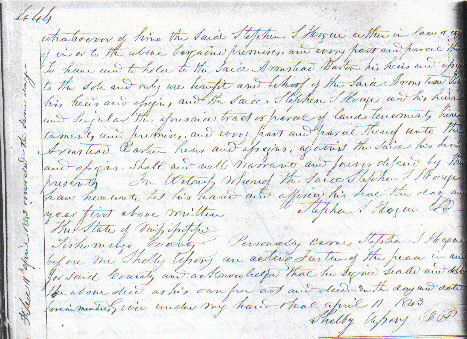 444
whatsoever of him the said Stephen S Hogue either in law or eq
of in or to the above bargained premises, and every part and parcel the
To have and to hold to the Said Armstead Barton his heirs and
to the Sole and only use benefit and behoof of the Said Armstead
his heirs and assigns, and the Said Stephen S Hogue and his heirs
and Singular the aforesaid tract or parcel of land tenements
and premises, and every part and parcel thereof unto the
Armstead Barton heirs and assigns, against the Said his heirs
and assigns Shall and will Warrant and forever defend by these
presents In Witness whereof the Said Stephen S Hogue
have hereunto Set his hand and his Seal the day an
year first above written Stephen S Hogue
The State of Mississippi
Tishomingo County Personally Came Stephen S Hogue
before me Shelby an acting Justice of the peace in an
for Said County and acknowledged that he Signed Seald and
the above deed as his own free act and deed on the day and date
Given under my hand & Seal april 11 1843
Shelby
recorded the Same day